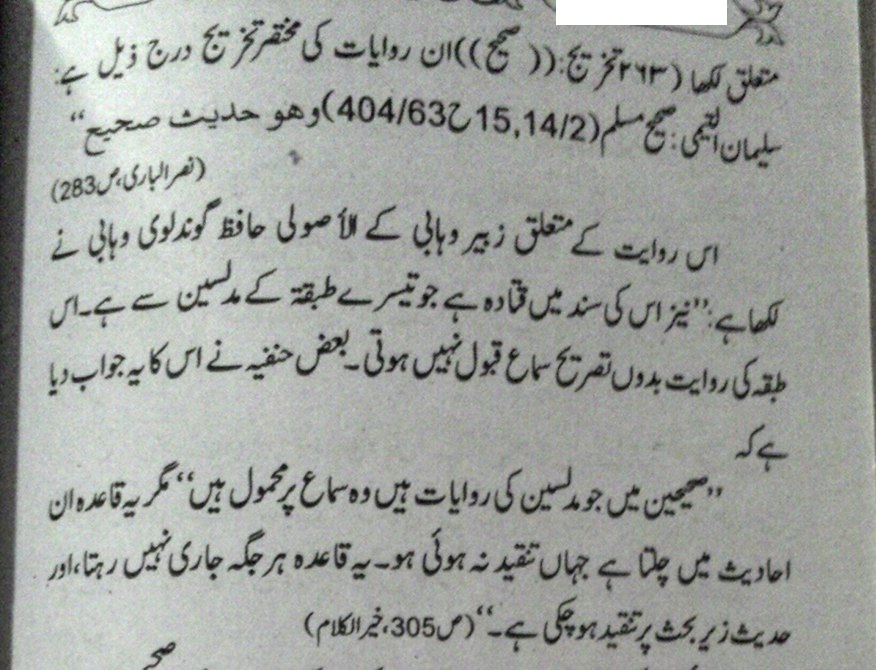 متعلق لکھا (۲۶۳ تخریج: ((صحیح)) ان روایات کی مختصر تخریج درج ذیل ہے:
سلیمان التیمی: صحیح مسلم (15,14/2 ح 404/63) وھو حدیث صحیح“
(نصر الباری، ص 283)
اس روایت کے متعلق زبیر وہابی کے الأصولی حافظ گوندلوی وہابی نے
لکھا ہے: ”نیز اس کی سند میں قتادہ ہے جو تیسرے طبقۃ کے مدلسین سے ہے۔ اس
طبقہ کی روایت بدوں تصریح سماع قبول نہیں ہوتی۔ بعض حنفیہ نے اس کا یہ جواب دیا
ہے کہ
”صحیحین میں جو مدلسین کی روایات ہیں وہ سماع پر محمول ہیں“ مگر یہ قاعدہ ان
احادیث میں چلتا ہے جہاں تنقید نہ ہوئی ہو۔ یہ قاعدہ ہر جگہ جاری نہیں رہتا، اور
حدیث زیر بحث پر تنقید ہو چکی ہے۔“ (ص 305، خیر الکلام)